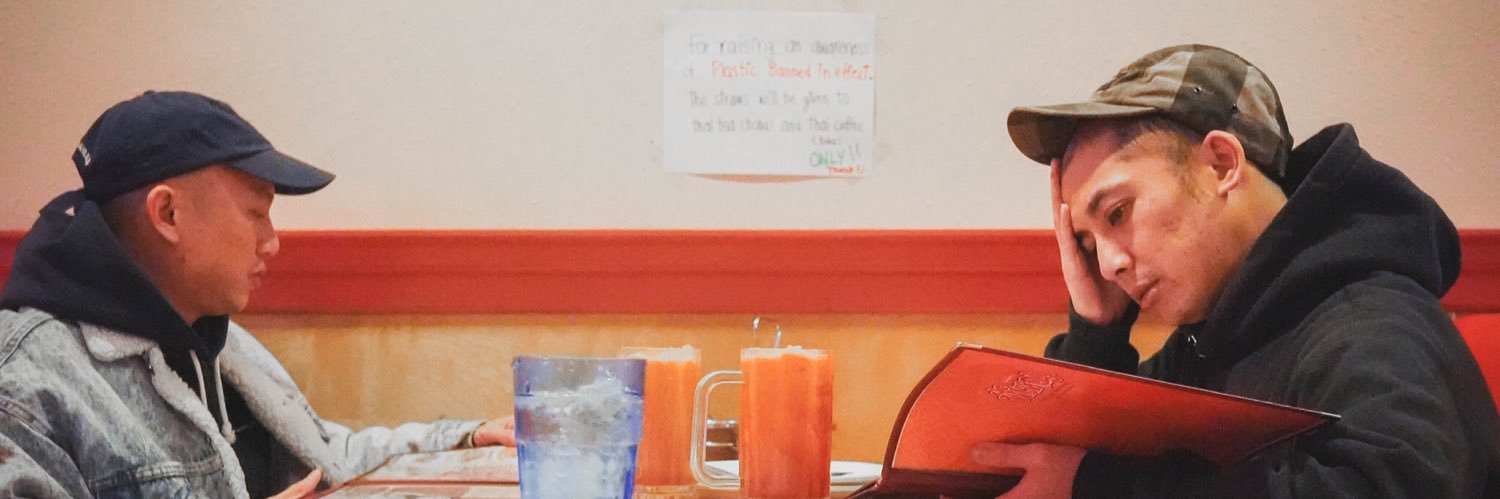 For raising an awareness
of Plastic Banned in effect.
The straws will be given to
thai tea (boba) and Thai coffee
(boba)
ONLY!!